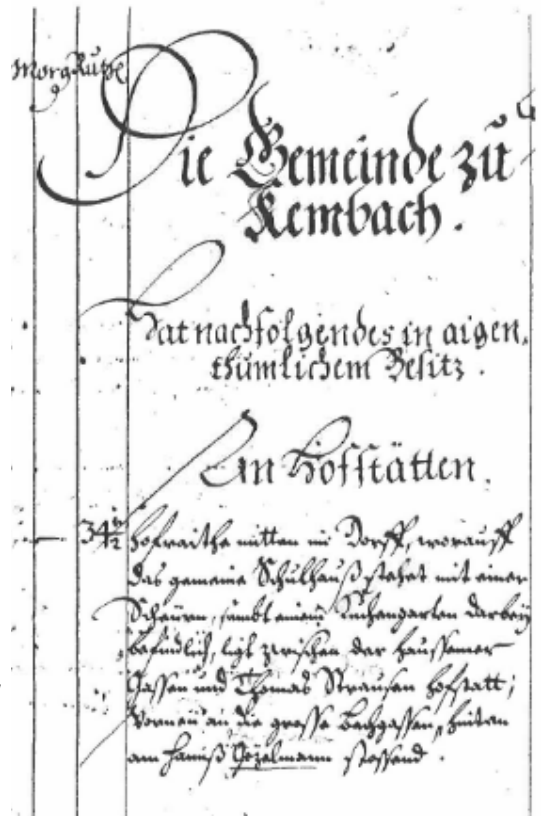 Morg Ruthe
Die Gemeinde zu
Kembach.
Hat nachfolgendes in aigen,
thümlichem Besitz.
An Hofstätten.
34½ Hofraithe mitten im Dorff, worauff
das gemeine Schulhauß stehet mit einer
Scheüern, sambt einem Küchengarten darbey
befindlich, ligt zwischen der Haussemer
Gassen und Thomas Strausen Hofstatt;
Vornen an die grosse Bachgassen, hinten
am Hanß Gözelmann stossend.